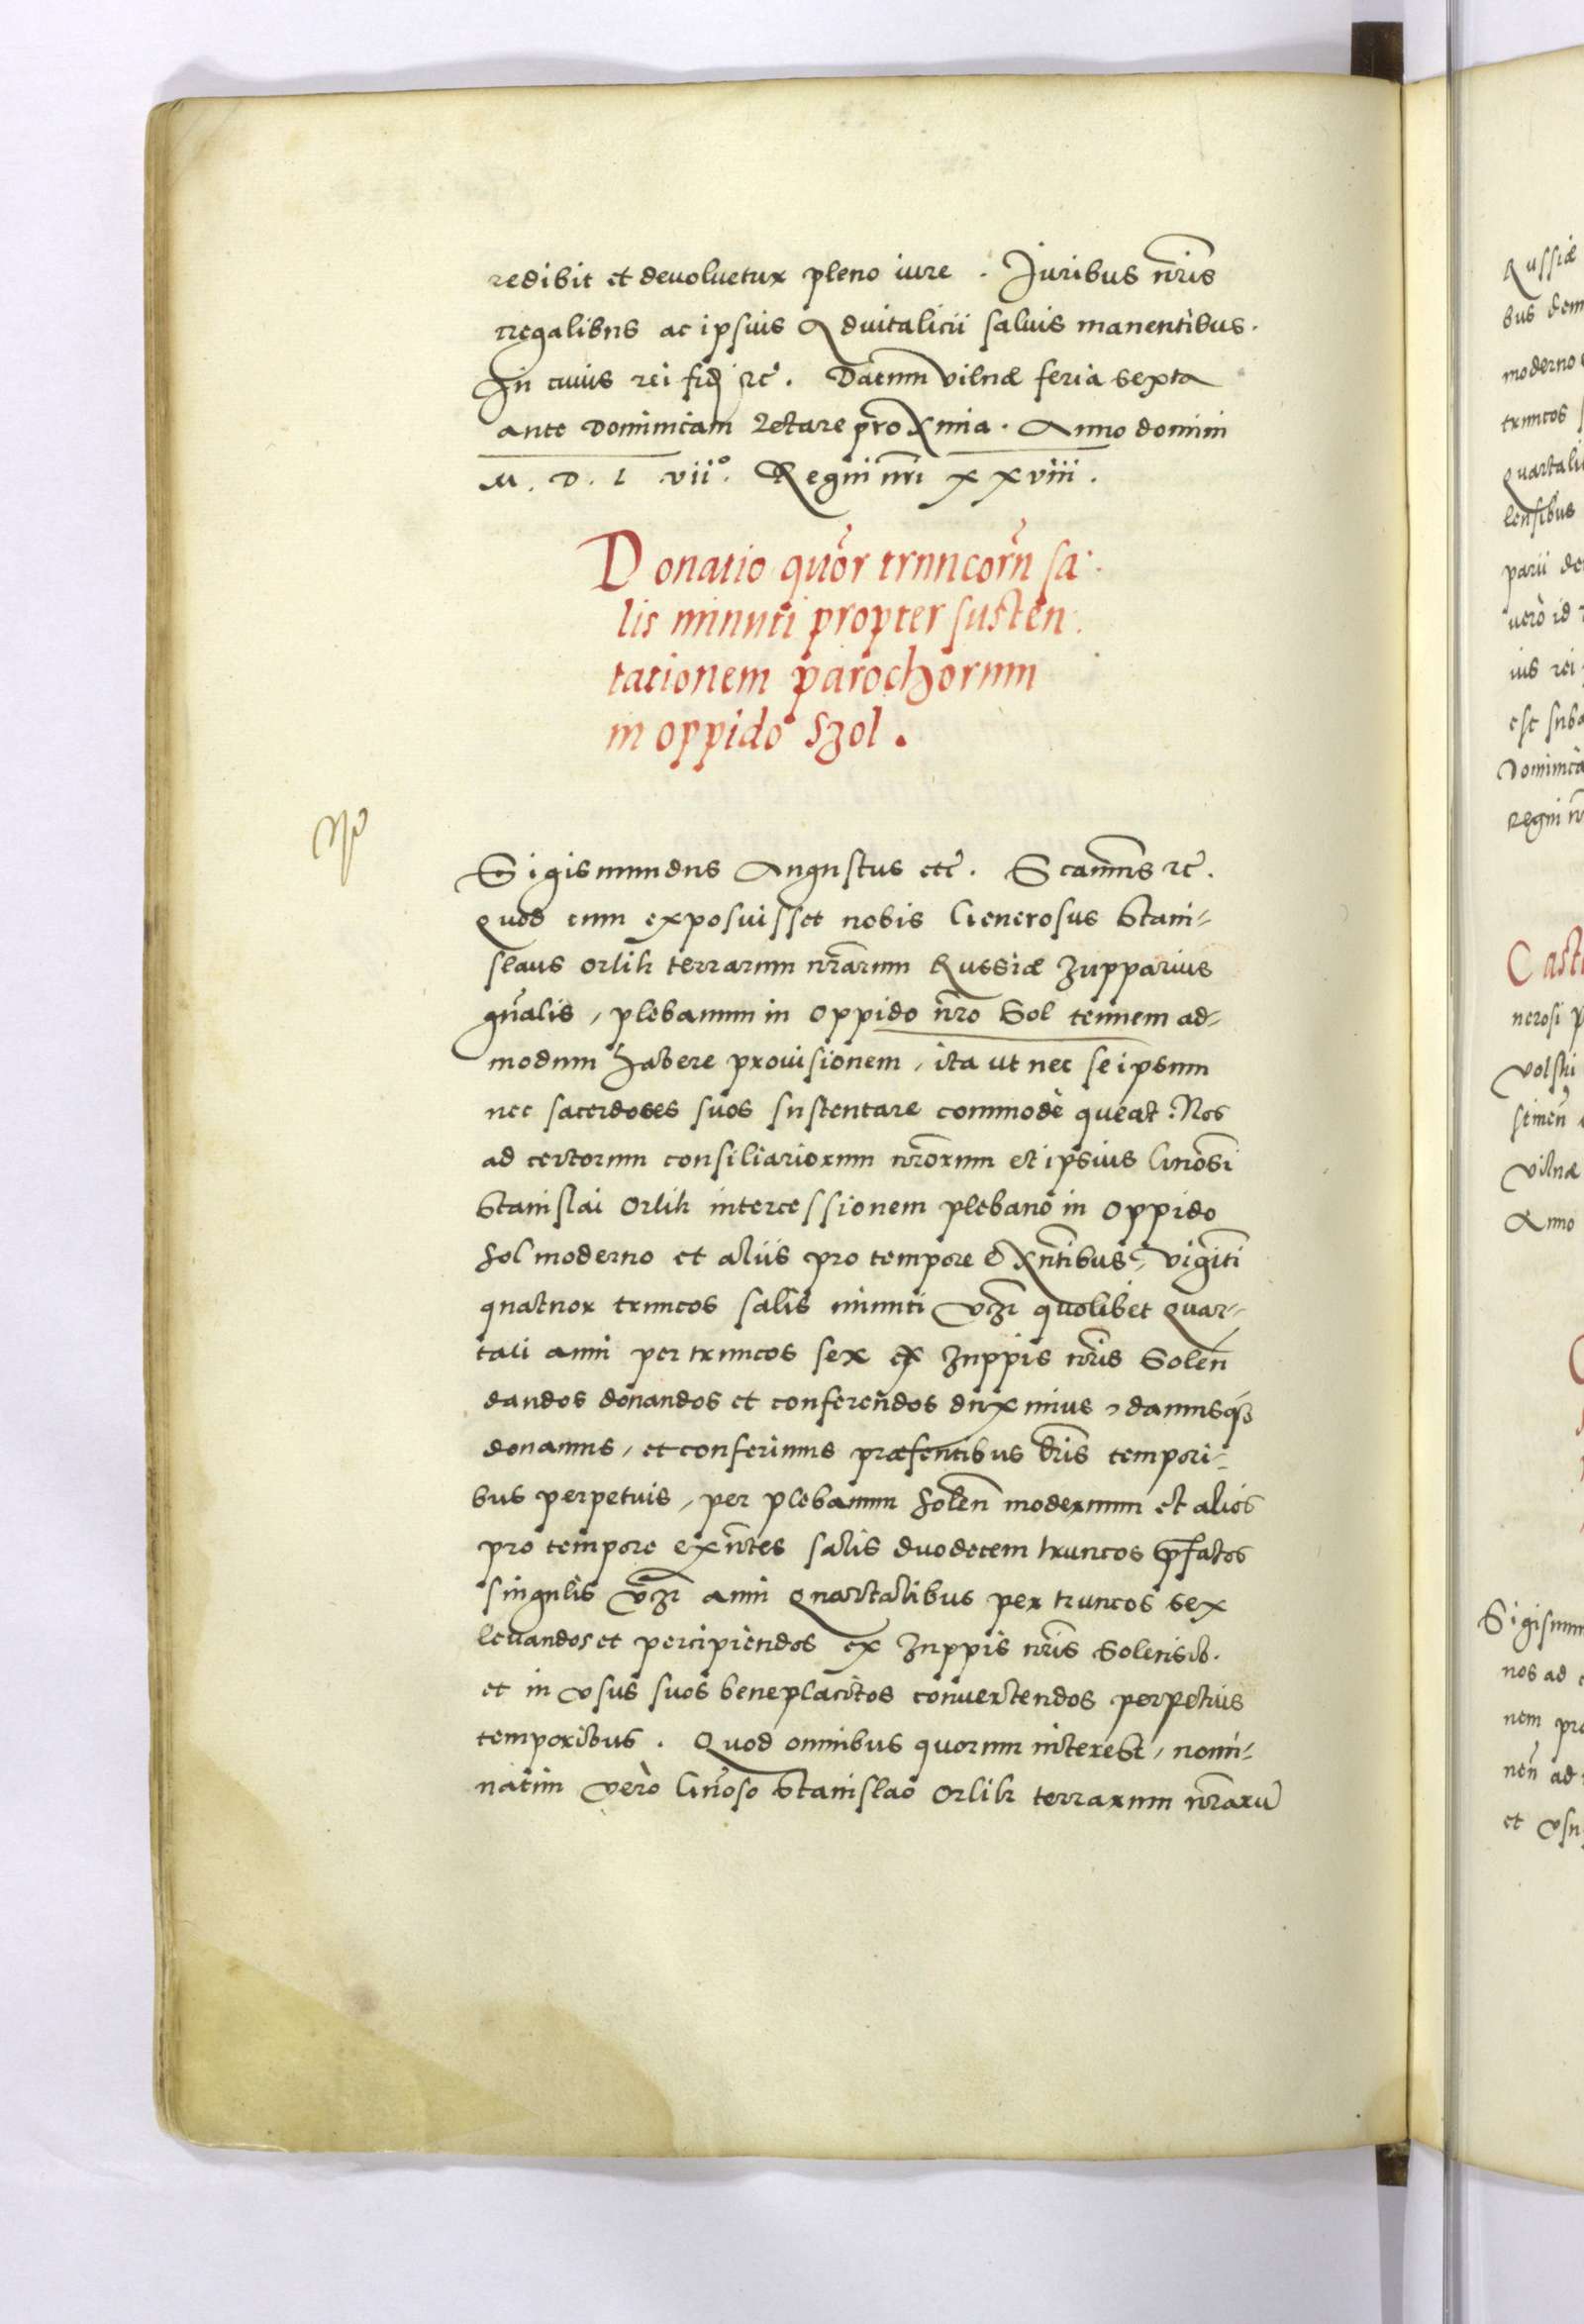 redibit et devoluetur pleno iure. Juribus nr̃is
regalibus ac ipsius Aduitalicii saluis manentibus.
In cuius rei fidẽ ꝛc̃. Datum Vilnæ feria sexta
ante Dominicam Letare proxima. Anno domini
M. D. L vii°. Regni nr̃i xxviii.
Donatio quõr truncorũ sa-
lis minuti propter susten-
tationem parochorum
in oppido Szol.
Sigismundus Augustus etc̃. Sc̃amus ꝛc̃.
Quod cum exposuisset nobis Generosus Stani-
slaus Orlik terrarum nr̃arum Russiæ Zupparius
gñalis, plebanum in oppido nr̃o Sol tenuem ad-
modum habere prouisionem, ita ut nec seipsum
nec sacerdotes suos sustentare commodè queat: Nos
ad certorum consiliariorum nr̃orum et ipsius Gñosi
Stanislai Orlik intercessionem plebano in oppido
Sol moderno et aliis pro tempore exñtibus, viginti
quatuor truncos salis minuti vz̃ quolibet quar-
tali anni per truncos sex ex Zuppis nr̃is Soleñ
dandos donandos et conferendos duximus, damusqꝫ
donamus, et conferimus præsentibus lr̃is tempori-
bus perpetuis, per plebanum Soleñ modernum et alios
pro tempore exñtes salis duodecem truncos p̃fatos
singulis vz̃ anni quartalibus per truncos sex
leuandos et percipiendos ex Zuppis nr̃is Solensib.
et in vsus suos beneplacitos conuertendos perpetuis
temporibus. Quod omnibus quorum interest, nomi-
natim verò Gñoso Stanislao Orlik terrarum nr̃arũ